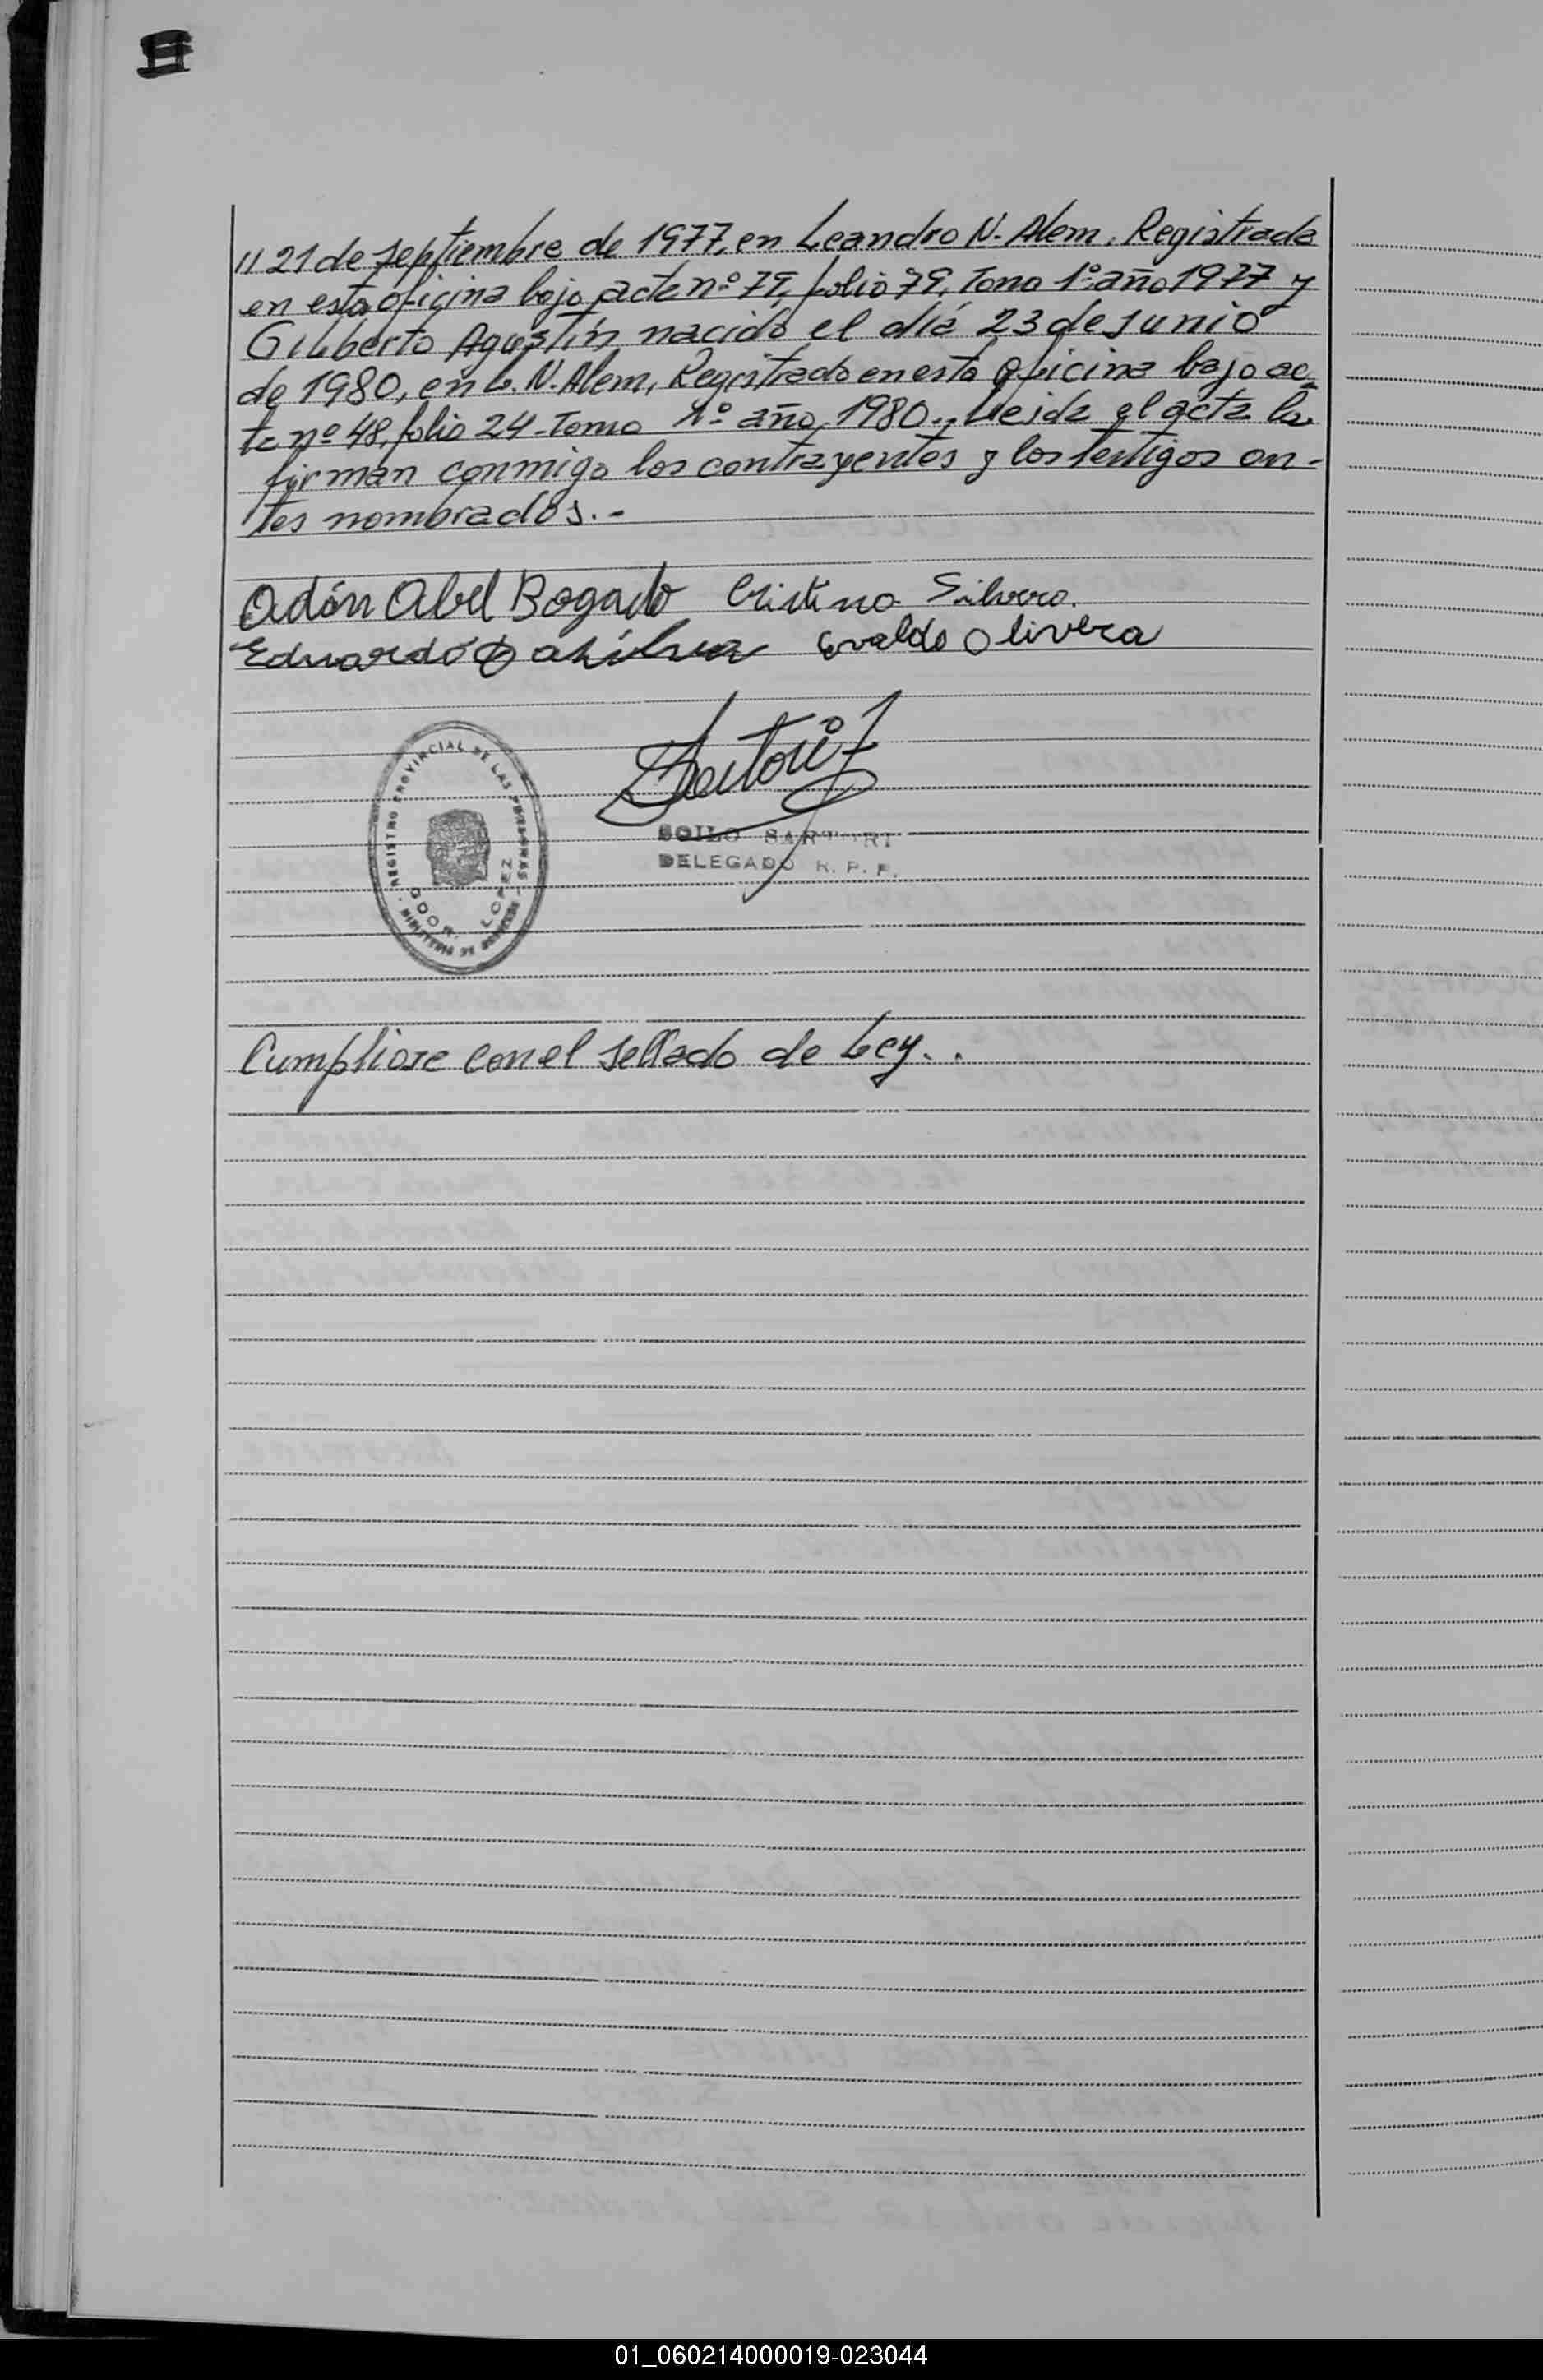 II
11 21 de septiembre de 1977, en Leandro N. Alem. Registrada
en esta oficina bajo acta nº 79, folio 79, Tomo 1º año 1977 y
Gilberto Agustín nacido el día 23 de Junio
de 1980, en L. N. Alem, Registrado en esta oficina bajo ac-
ta nº 48, folio 24 - Tomo 1º año 1980.- Leida el acta la
firman conmigo los contrayentes y los testigos an-
tes nombrados.-
Adón Abel Bogado Cristina Silvero.
Eduardo Dasilva Evaldo Olivera
Sartori
SOILO SARTORI
DELEGADO R. P. P.
REGISTRO PROVINCIAL DE LAS PERSONAS
GDOR. LOPEZ
Cumpliose con el sellado de Ley..
01_060214000019-023044